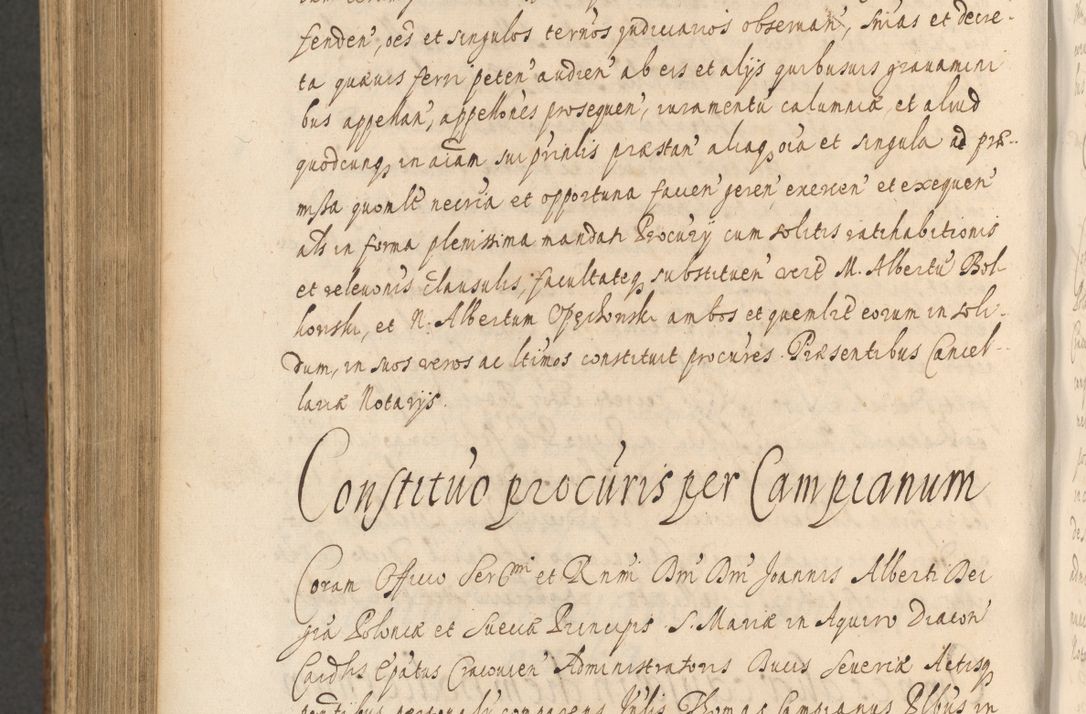 fenden', oēs et singulos ter'nos judiciarios observan', sn'ias et decre-
ta quævis ferri peten' audien' ab eis et alijs quibusvis gravamini
bus appellan', appell'ones prosequen', iuramentū calumniæ et aliud
quodcunq, in aīam sui prīnlis præstan' aliaq, oīa et singula ad præ-
missa quom'lt necr'ia et opportuna facien' geren' exercen' et exequen'
als in forma plenissima mandati Procur'ij cum solitis ratihabitionis
et relevon'is clausulis, facultateq substituen' ver'd M. Albertū Bol
konski, et N. Albertum Opęchonski ambos et quemli'd eorum in soli-
dum, in suos veros ac l'timos constituit procu'res. Præsentibus Cancel-
lariæ Notarijs.
Constitu'o procu'ris per Campianum
Coram Officio Ser'mi et R'nmi D'ni D'ni Joannis Alberti Dei
gr'a Poloniæ et Sueciæ Principis S. Mariæ in Aquiro Diacon'
Car'dlis Ep'atus Cracovien' Administratoris Ducis Severiæ Actisq
personaliter comparens Thomas Campianus in